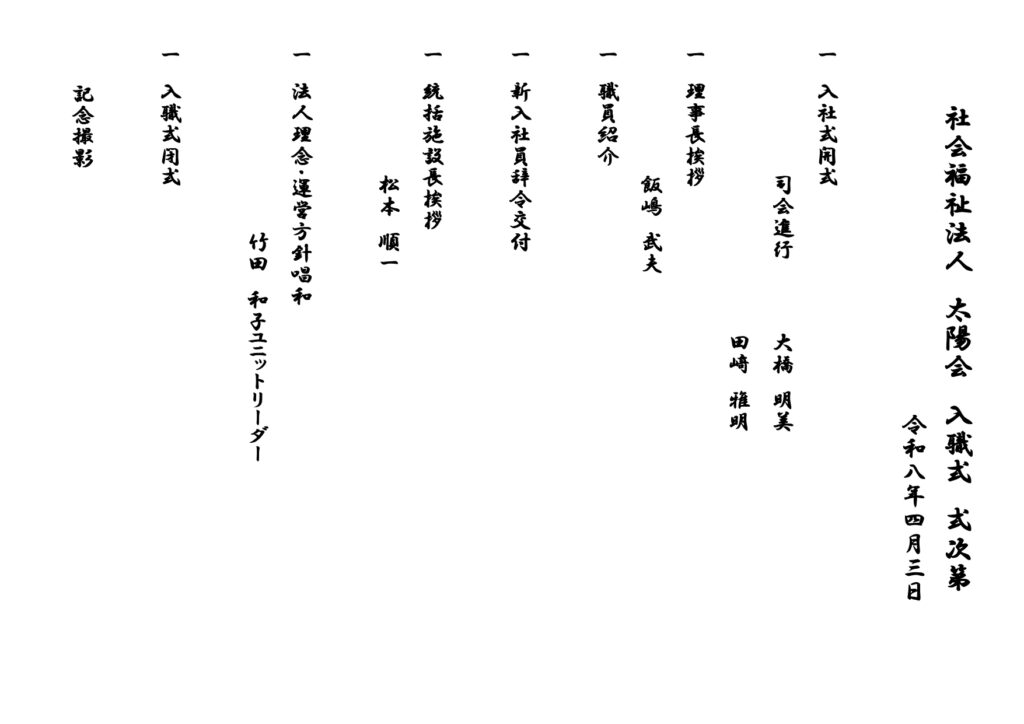 社会福祉法人 太陽会 入職式 式次第
令和八年四月三日
一 入社式開式
司会進行 大橋 明美
田﨑 雅明
一 理事長挨拶
飯嶋 武夫
一 職員紹介
一 新入社員辞令交付
一 統括施設長挨拶
松本 順一
一 法人理念・運営方針唱和
竹田 和子ユニットリーダー
一 入職式閉式
記念撮影